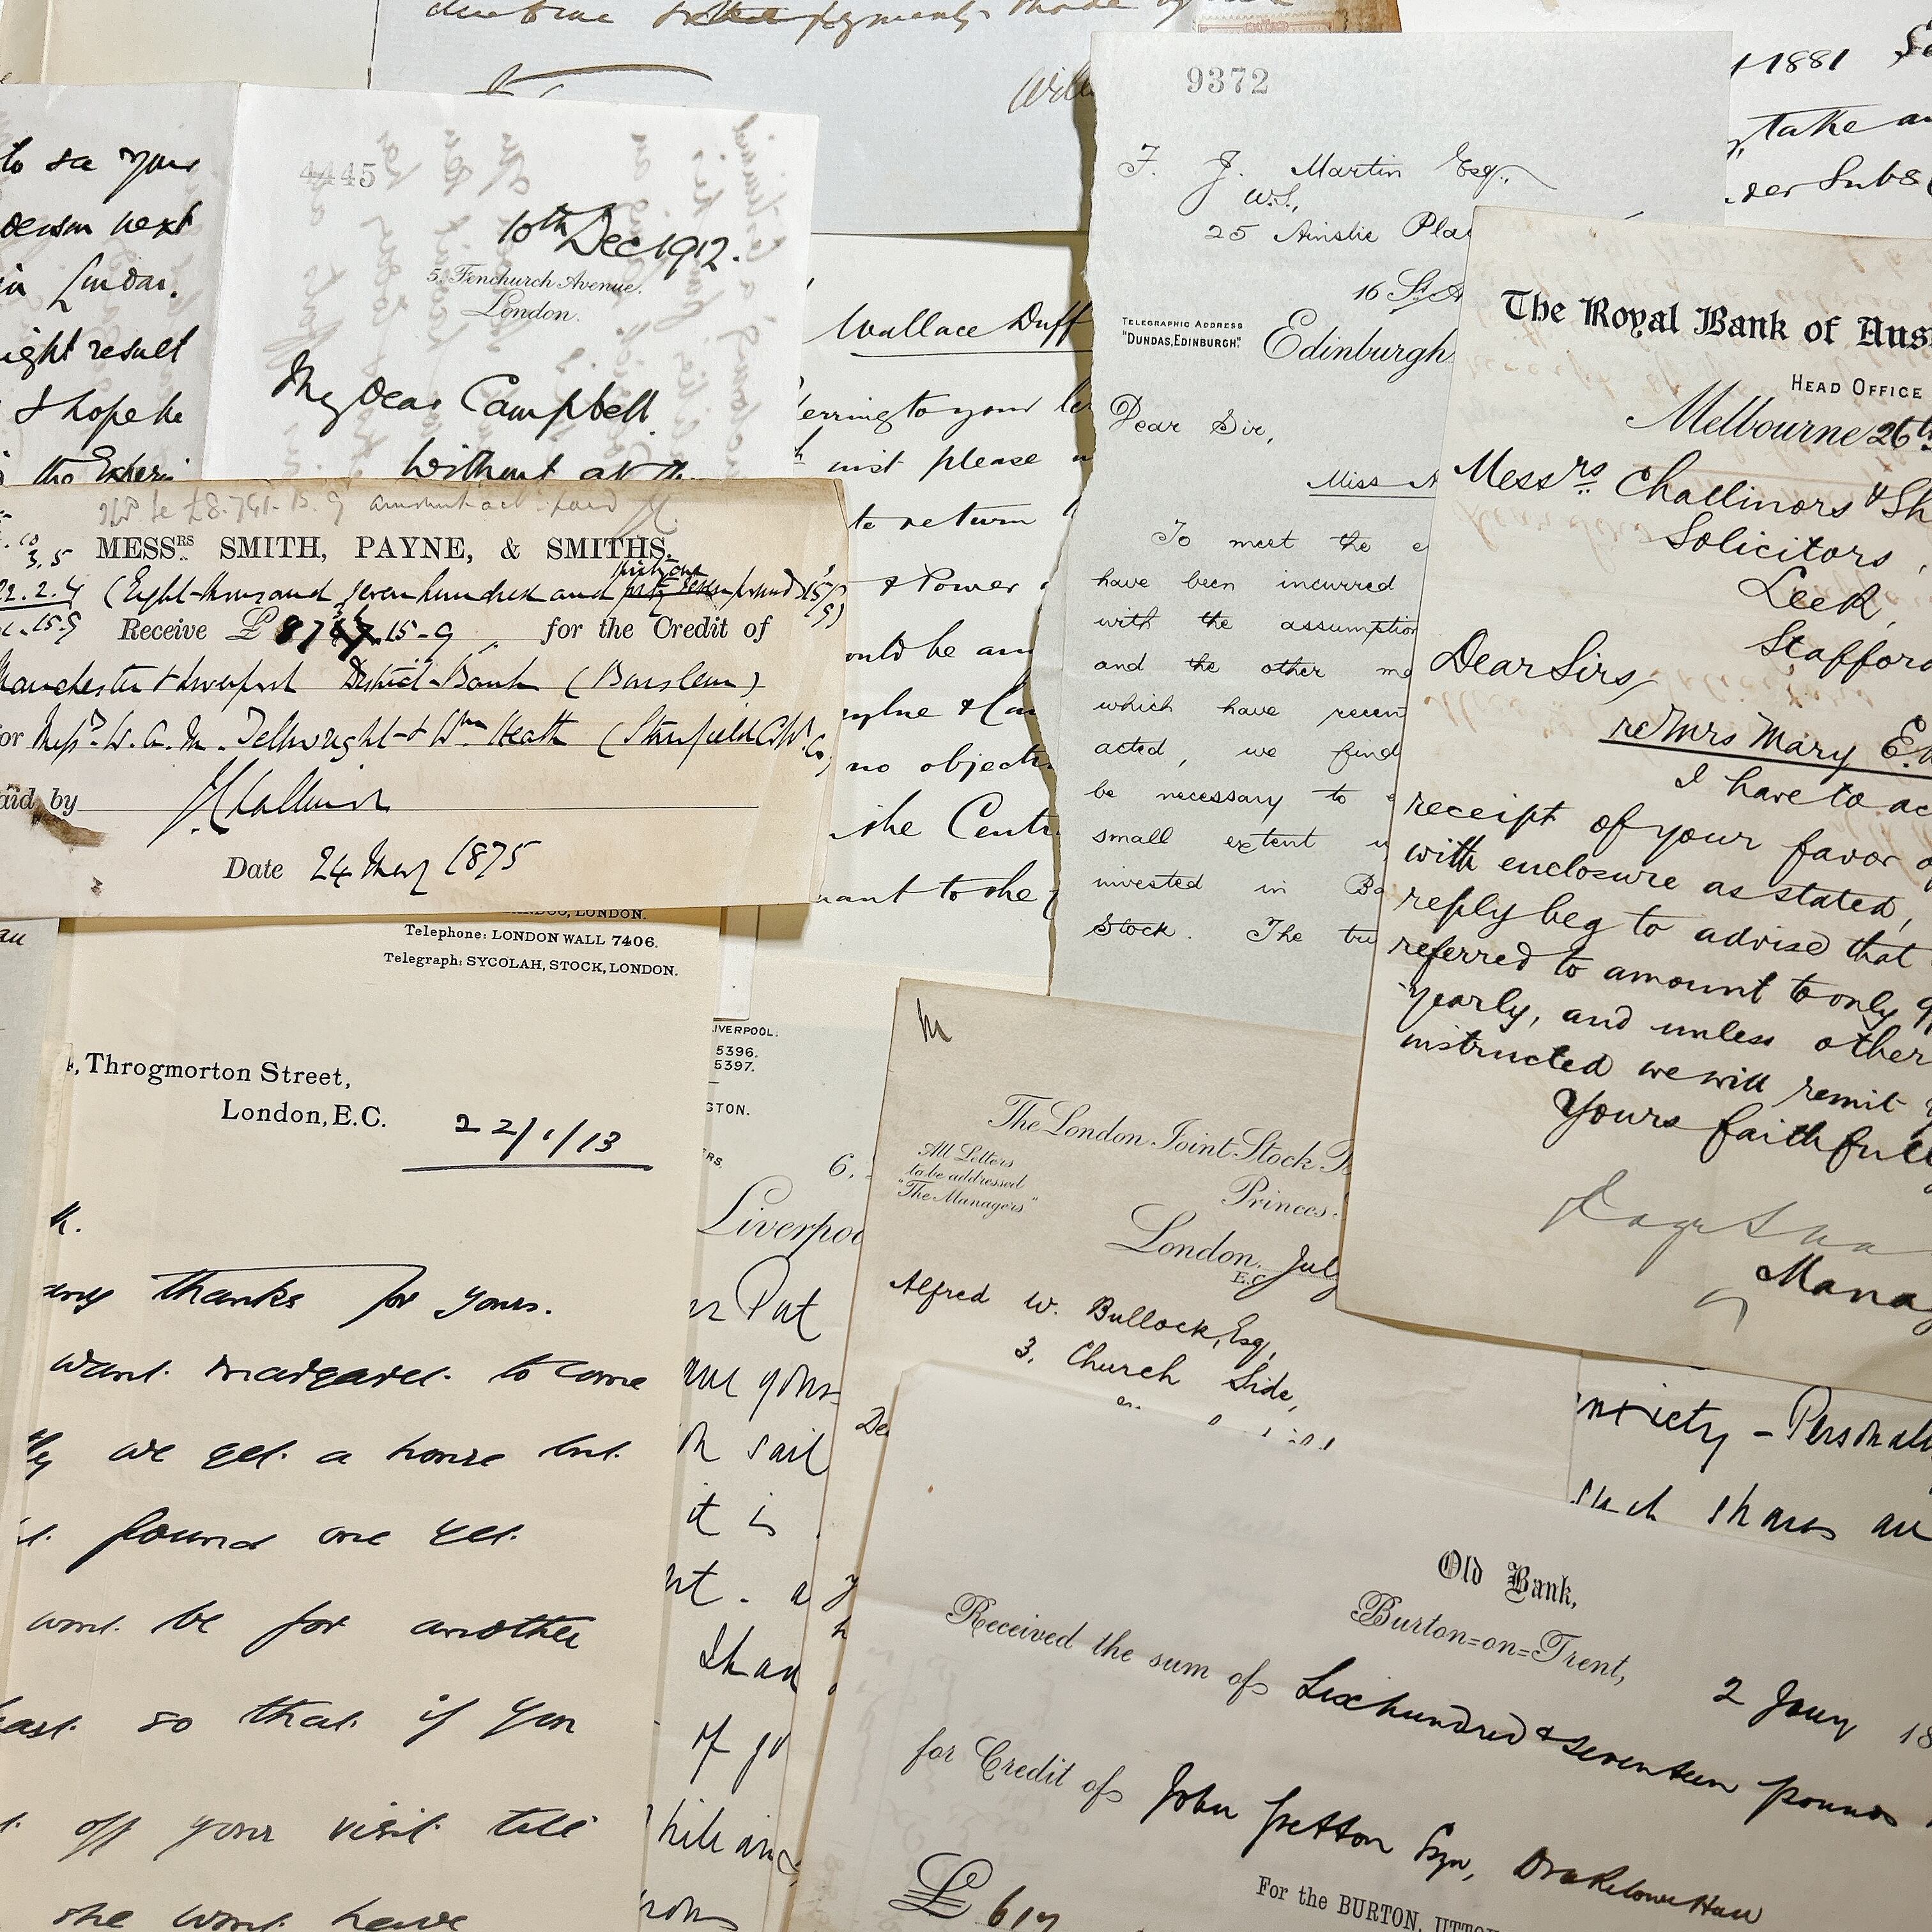 to see your
next
in London.
right result
I hope he
the
4445
10th Dec 1912.
5, Fenchurch Avenue.
London.
My dear Campbell
without
payments made
9372
F. J. Martin Esq.,
W.S.,
25 Ainslie Pla
16 St. A
TELEGRAPHIC ADDRESS
"DUNDAS, EDINBURGH".
Edinburgh
Dear Sir,
Miss
To meet the e
have been incurred
with the assumption
and the other mo
which have recen
acted, we find
be necessary to
small extent
invested in Ba
Stock. The tru
1881
take an
der Subs
Wallace Duff
erring to your le
inst please
to return
& Power
ould be
no objecti
she Cent
want to the
The Royal Bank of Aus
HEAD OFFICE
Melbourne 26th
Messrs Challinors & Sh
Solicitors,
Leek,
Stafford
Dear Sirs,
re Mrs Mary E.
I have to ac
receipt of your favor o
with enclosure as stated,
reply beg to advise that
referred to amount to only
yearly, and unless other
instructed we will remit
Yours faithfull
Manag
3.5
22.2.4
MESSRS. SMITH, PAYNE, & SMITHS.
(Eight thousand seven hundred and pounds 15/9)
Receive £ 15-9 for the Credit of
Manchester & Liverpool District Bank (Burslem)
or Messrs. W. A. M. Tellwright & Wm Heath (Stanfield
aid by J Challinor
Date 24 May 1875
LONDON.
Telephone: LONDON WALL 7406.
Telegraph: SYCOLAH, STOCK, LONDON.
, Throgmorton Street,
London, E.C.
22/1/13
k.
any thanks for yours.
want Margaret to come
we get a house but
found one yet
wont be for another
east so that if you
off your visit till
she wont have
LIVERPOOL.
5396.
5397.
GTON.
ERS.
6.
Liverpoo
Put
sail
it is
nt. a
Shan
of
M
The London Joint Stock B
All Letters
to be addressed
"The Managers"
Princes
London, July
E.C.
Alfred W. Bullock, Esq,
3, Church Side,
De
anxiety - Personal
such shares are
Old Bank,
Burton=on=Trent,
2 Jany 18
Received the sum of Six hundred & seventeen pounds
for Credit of John Gretton Esqr, Drakelowe Hall
£ 617
For the BURTON, UTTO